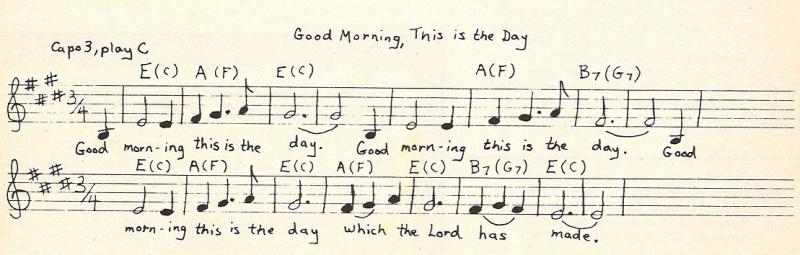 Good Morning, This is the Day
Capo 3, play C
E(C) A (F) E(C) A(F) B7(G7)
3/4
Good morn-ing this is the day. Good morn-ing this is the day. Good
E(C) A(F) E(C) A(F) E(C) B7(G7) E(C)
3/4
morn-ing this is the day which the Lord has made.